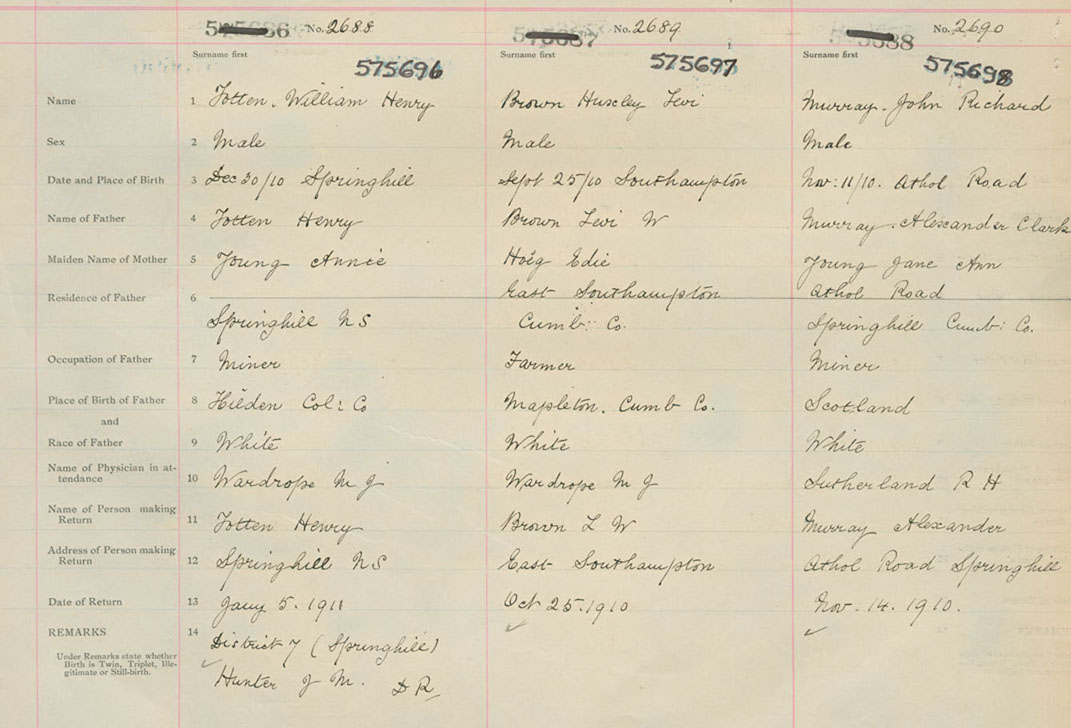 No. 2688 No. 2689 No. 2690
Surname first Surname first Surname first
575696 575697 575698
Name 1 Totten. William Henry Brown Huxley Levi Murray. John Richard
Sex 2 Male Male Male
Date and Place of Birth 3 Dec 30/10 Springhill Sept 25/10 Southampton Nov: 11/10. Athol Road
Name of Father 4 Totten Henry Brown Levi W Murray. Alexander Clark
Maiden Name of Mother 5 Young Annie Hoeg Edie Young Jane Ann
Residence of Father 6 East Southampton Athol Road
Springhill NS Cumb: Co. Springhill Cumb: Co.
Occupation of Father 7 Miner Farmer Miner
Place of Birth of Father 8 Hilden Col: Co Mapleton. Cumb Co. Scotland
and
Race of Father 9 White White White
Name of Physician in at-
tendance 10 Wardrope M J Wardrope M J Sutherland R H
Name of Person making
Return 11 Totten Henry Brown L W Murray Alexander
Address of Person making
Return 12 Springhill NS East Southampton Athol Road Springhill
Date of Return 13 Jany 5. 1911 Oct 25. 1910 Nov. 14. 1910.
REMARKS 14 District 7 (Springhill)
Under Remarks state whether
Birth is Twin, Triplet, Ille-
gitimate or Still-birth.
Hunter J M. D R